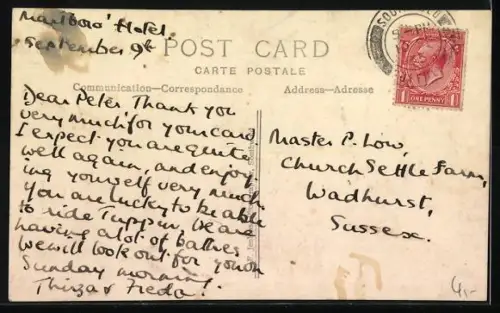 Marlboro' Hotel.
September 9th
POST CARD
CARTE POSTALE
Communication—Correspondence
Address—Adresse
Dear Peter Thank you
very much for your card.
I expect you are quite
well again, and enjoy-
ing yourself very much.
you are lucky to be able
to ride Tuppin. We are
having a lot of bathes
we will look out for you on
Sunday morning!
Thirza & Freda.
Master P. Low,
Church Settle Farm,
Wadhurst,
Sussex.
1 ONE PENNY 1
4,-